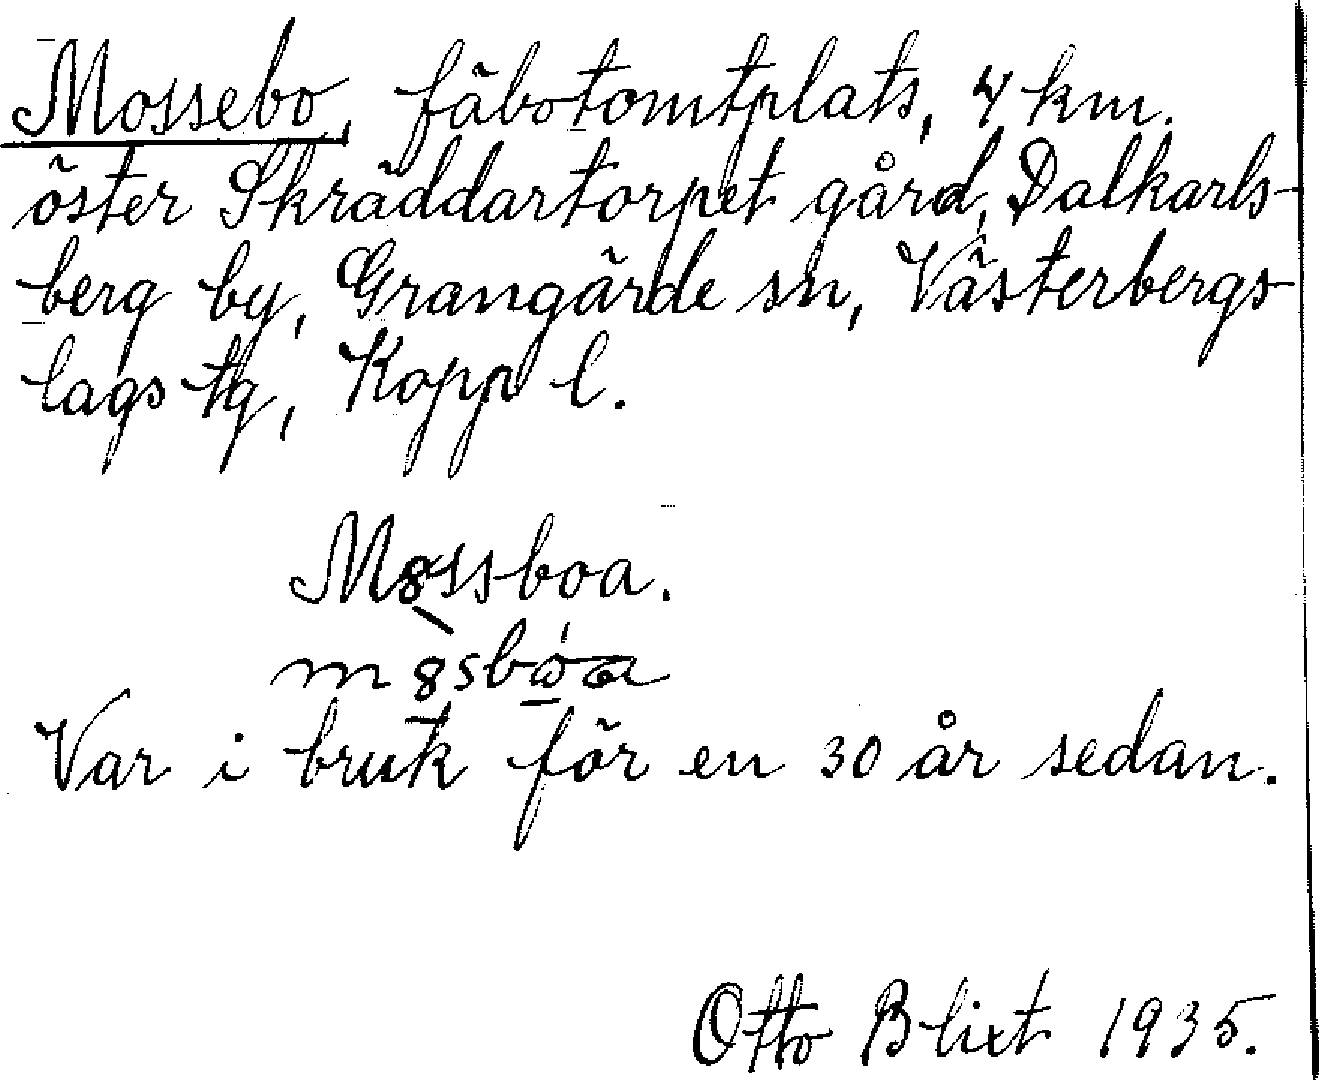 Mossebo, fäbotomtplats, 4 km.
öster Skräddartorpet gård, Dalkarls-
berg by, Grangärde sn, Västerbergs-
lags tg, Kopp l.
M8ssboa.
Var i bruk för en 30 år sedan.
Otto Blixt 1935.